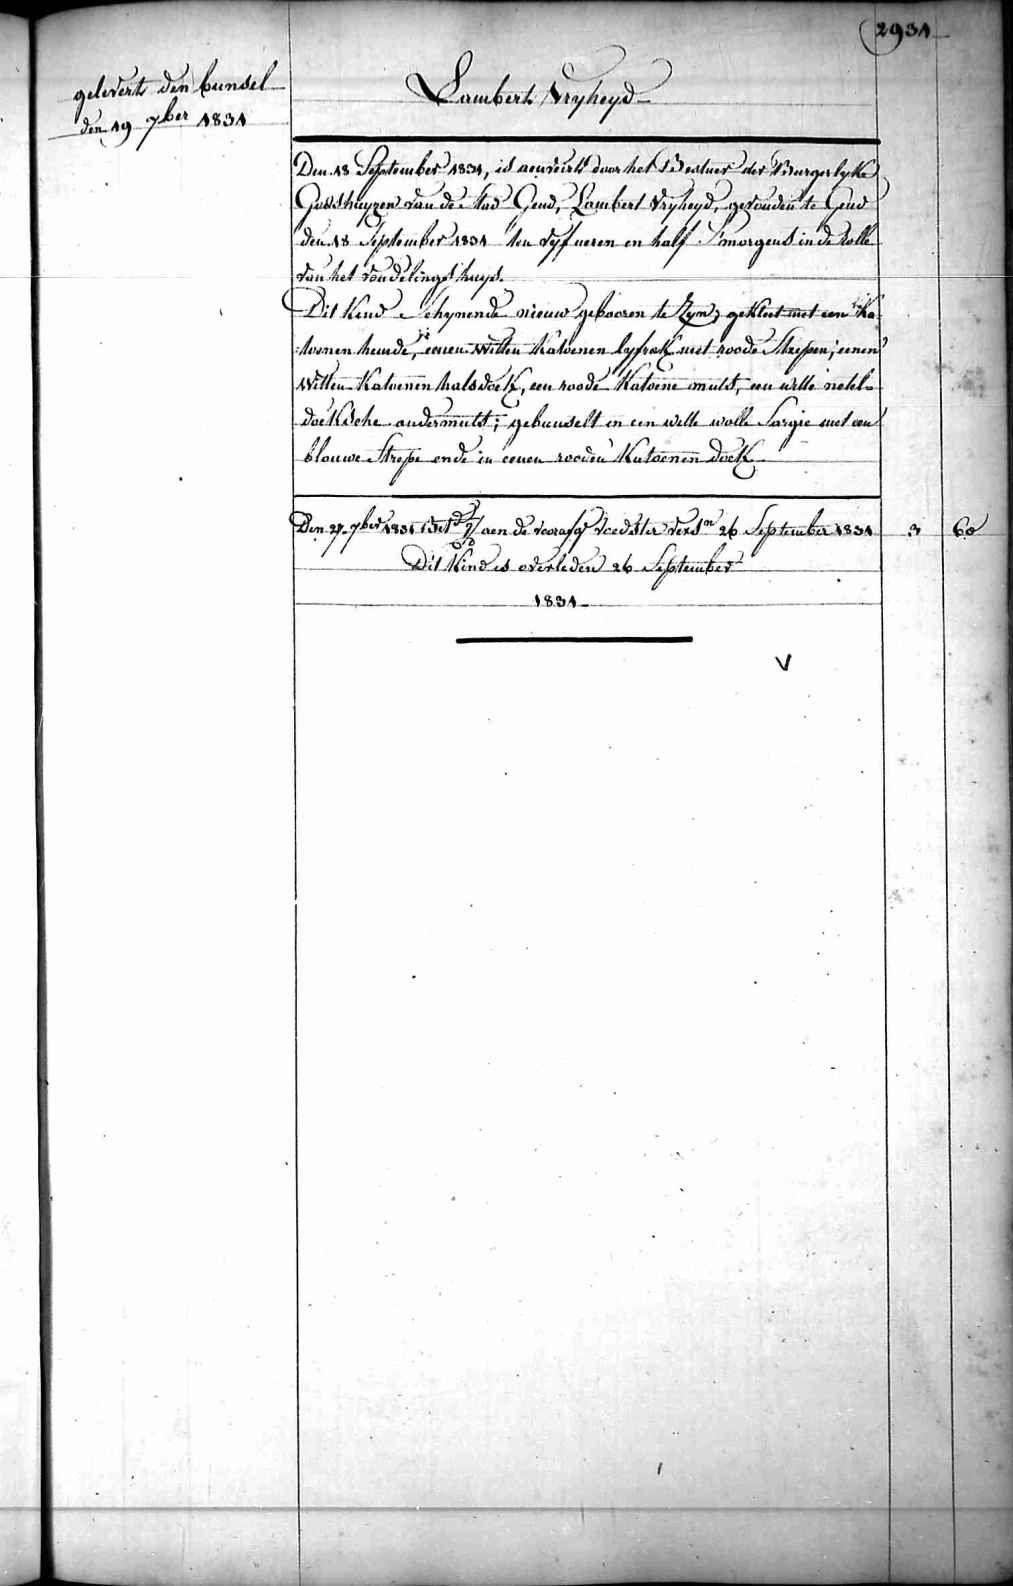 2931
gelevert den bunsel
den 19 7ber 1831
Lambert Vryheyd
Den 18 September 1831, is aenveirt door het Bestuer der Burgerlyke
Godshuyzen van de Stad Gend, Lambert Vryheyd, gevonden te Gend
den 18 September 1831 ten vyf ueren en half S'morgens in de rolle
van het vondelingshuys.
Dit Kind Schynende nieuw gebooren te Zyn; gekleet met een Ka-
toenen hemde, eenen witten katoenen lyfrok met roode Strepen; eenen
witten Katoenen halsdoek, een roode Katoene muts, een witte netel-
doeksche ondermuts; gebunselt in een witte wolle Sargie met een
blauwe Strepe ende in eenen rooden Katoenen doek
Den 27 7ber 1831 aen de voorafg voedster versn 26 September 1831 3 60
Dit Kind is overleden 26 September
1831
V